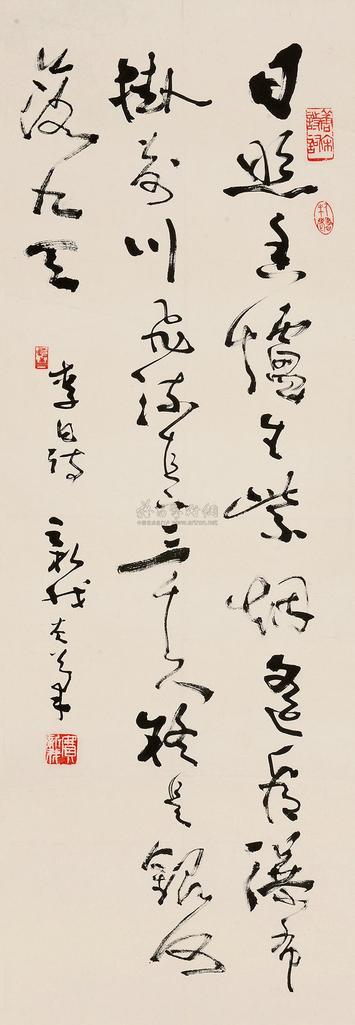 日照香爐生紫烟遙看瀑布
掛前川飛流直下三千尺疑是銀河
落九天
李白詩 新我左筆
雅昌藝術網